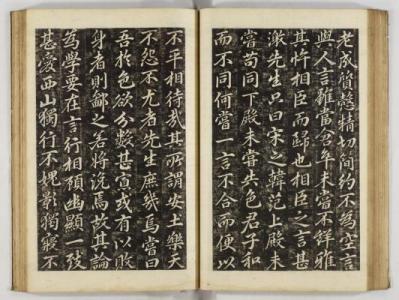 老成質愨精切簡約不為空言
與人言雖當倉卒未嘗不詳雅
其忤相臣而歸也相臣之言甚
激先生只曰宋之韓范上殿未
嘗苟同下殿未嘗失色君子和
而不同何嘗一言不合而便以
不平相待哉其所謂安土樂天
不怨不尤者先生庶幾焉嘗曰
吾於色欲分數甚寡或有以敗
身者則鄙之若將浼焉故其論
為學要在言行相顧幽顯一致
甚愛西山獨行不愧影獨寢不